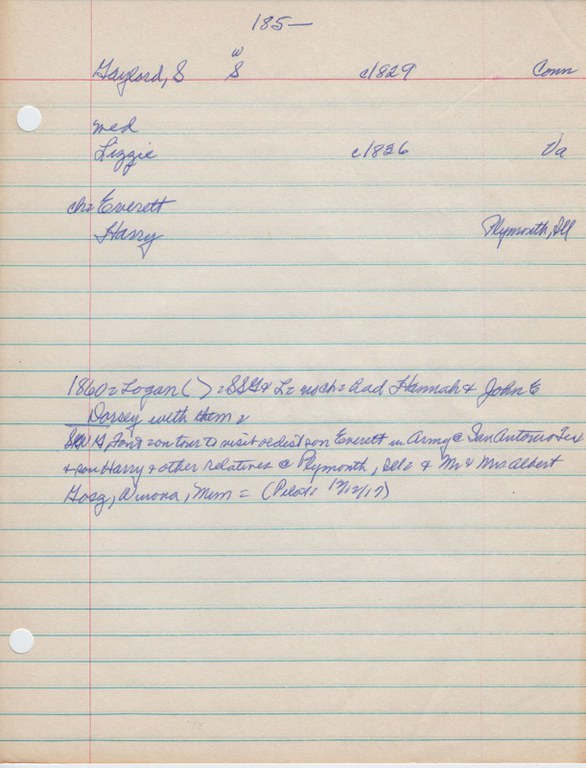 185—
w
Gaylord, S S c1829 Conn
med
Lizzie c1836 Va
ch= Everett
Harry Plymouth, Ill
1860= Logan ( ) = S & Lz no ch= had Hannah & John E
Dorsey with them
on tour to visit oldest son Everett in Army @ San Antonio Tex
& son Harry & other relatives @ Plymouth, Ills & Mr & Mrs Albert
Winona, Minn = (Pilot: 12/12/17)